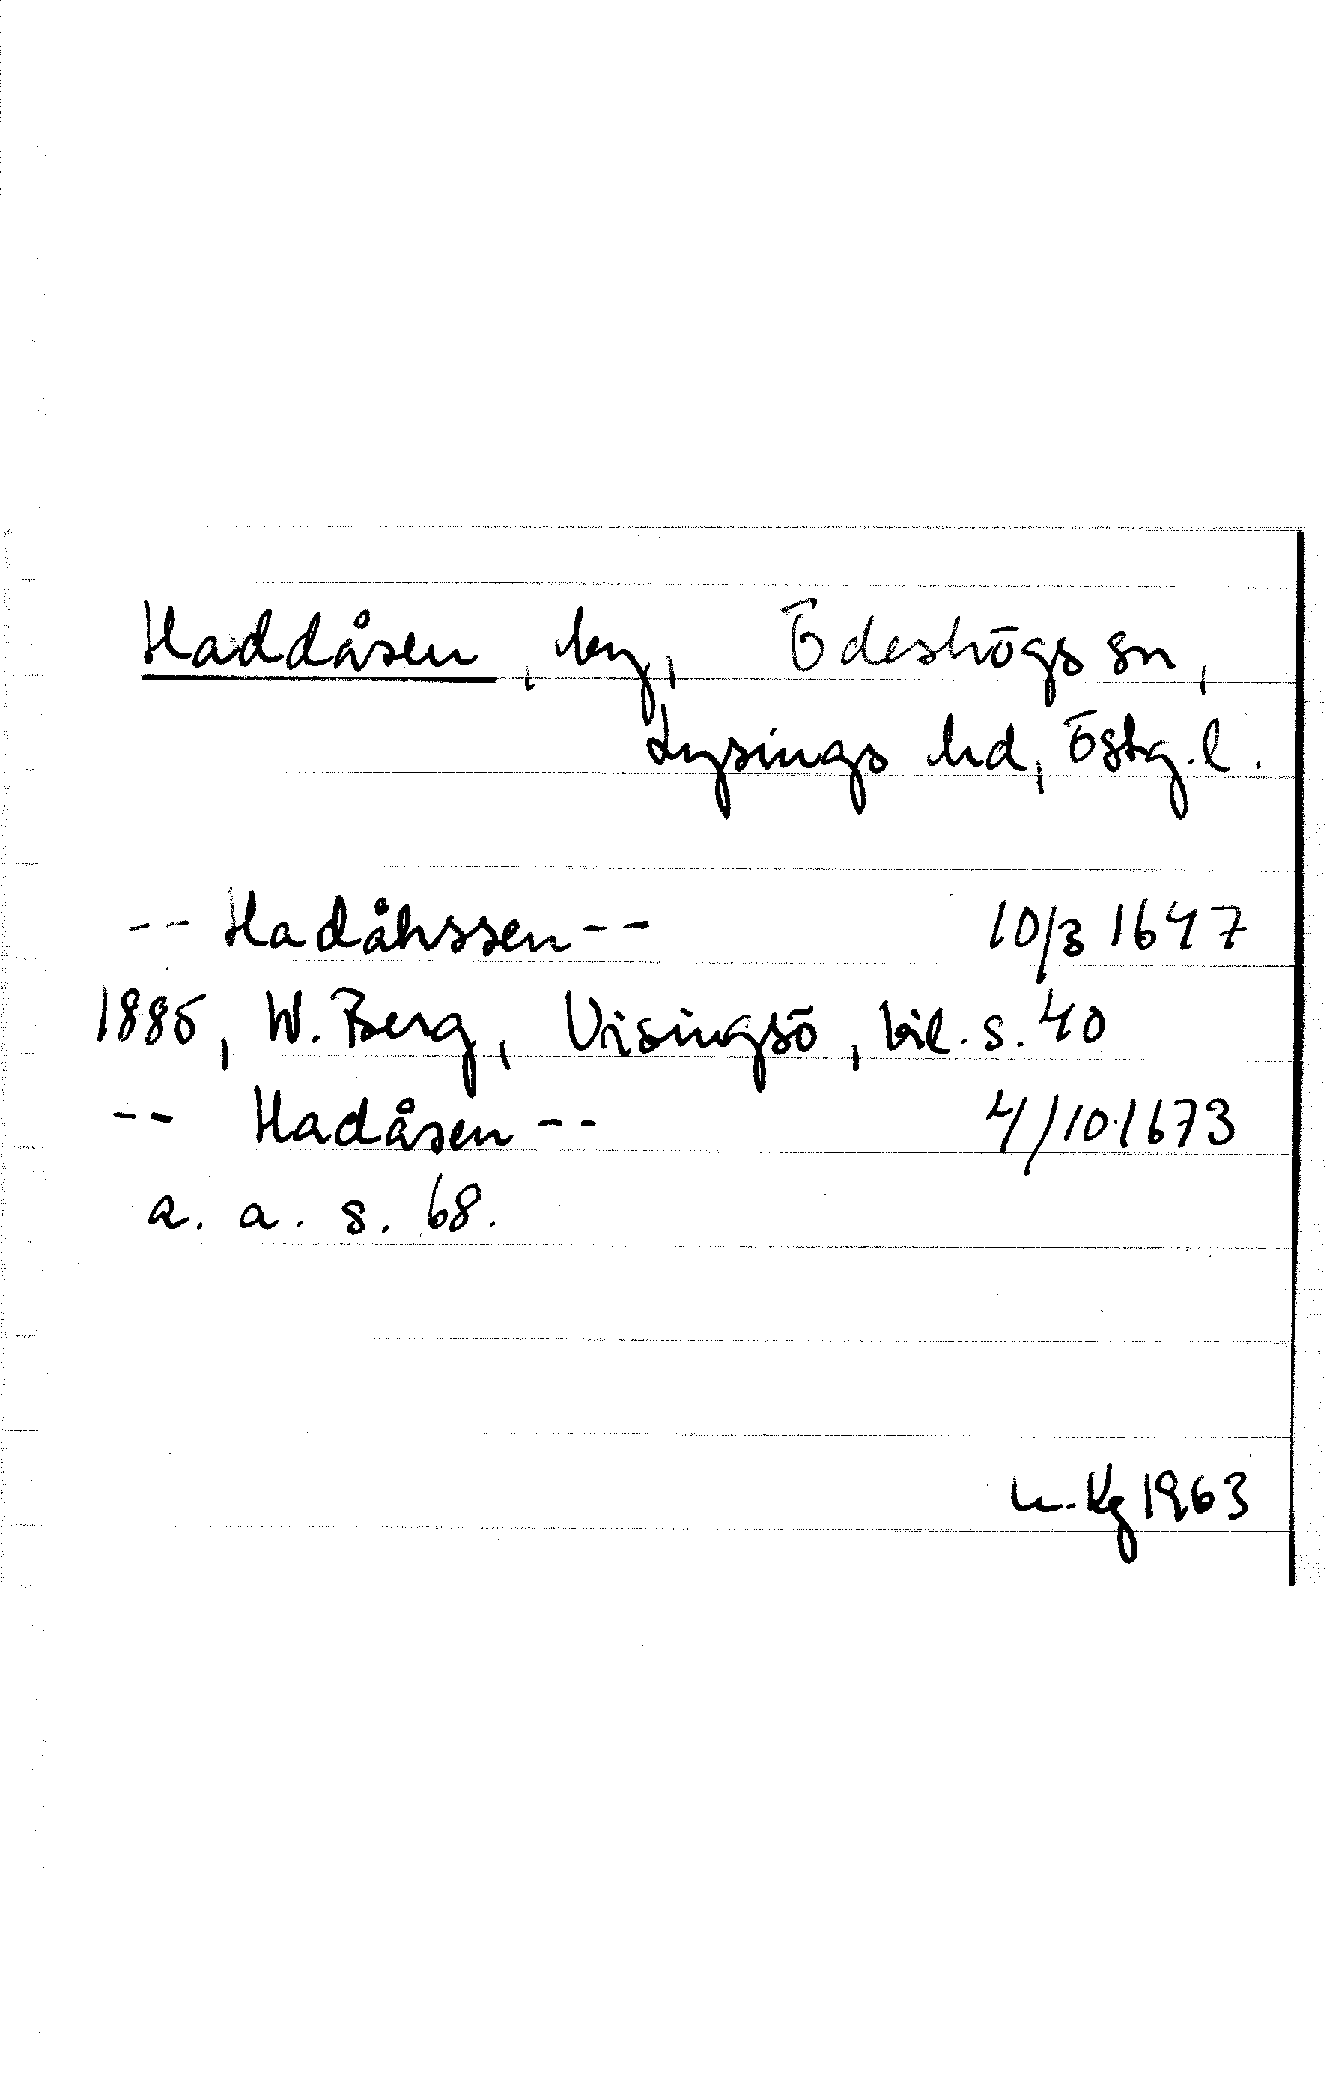 Haddåsen, by, Ödeshögs sn,
Lysings hd, Östg. l.
-- Hadåhssen -- 10/3 1647
1885, W. Berg, Visingsö, bil. s. 40
-- Hadåsen -- 4/10 1673
a. a. s. 68.
Kg 1963